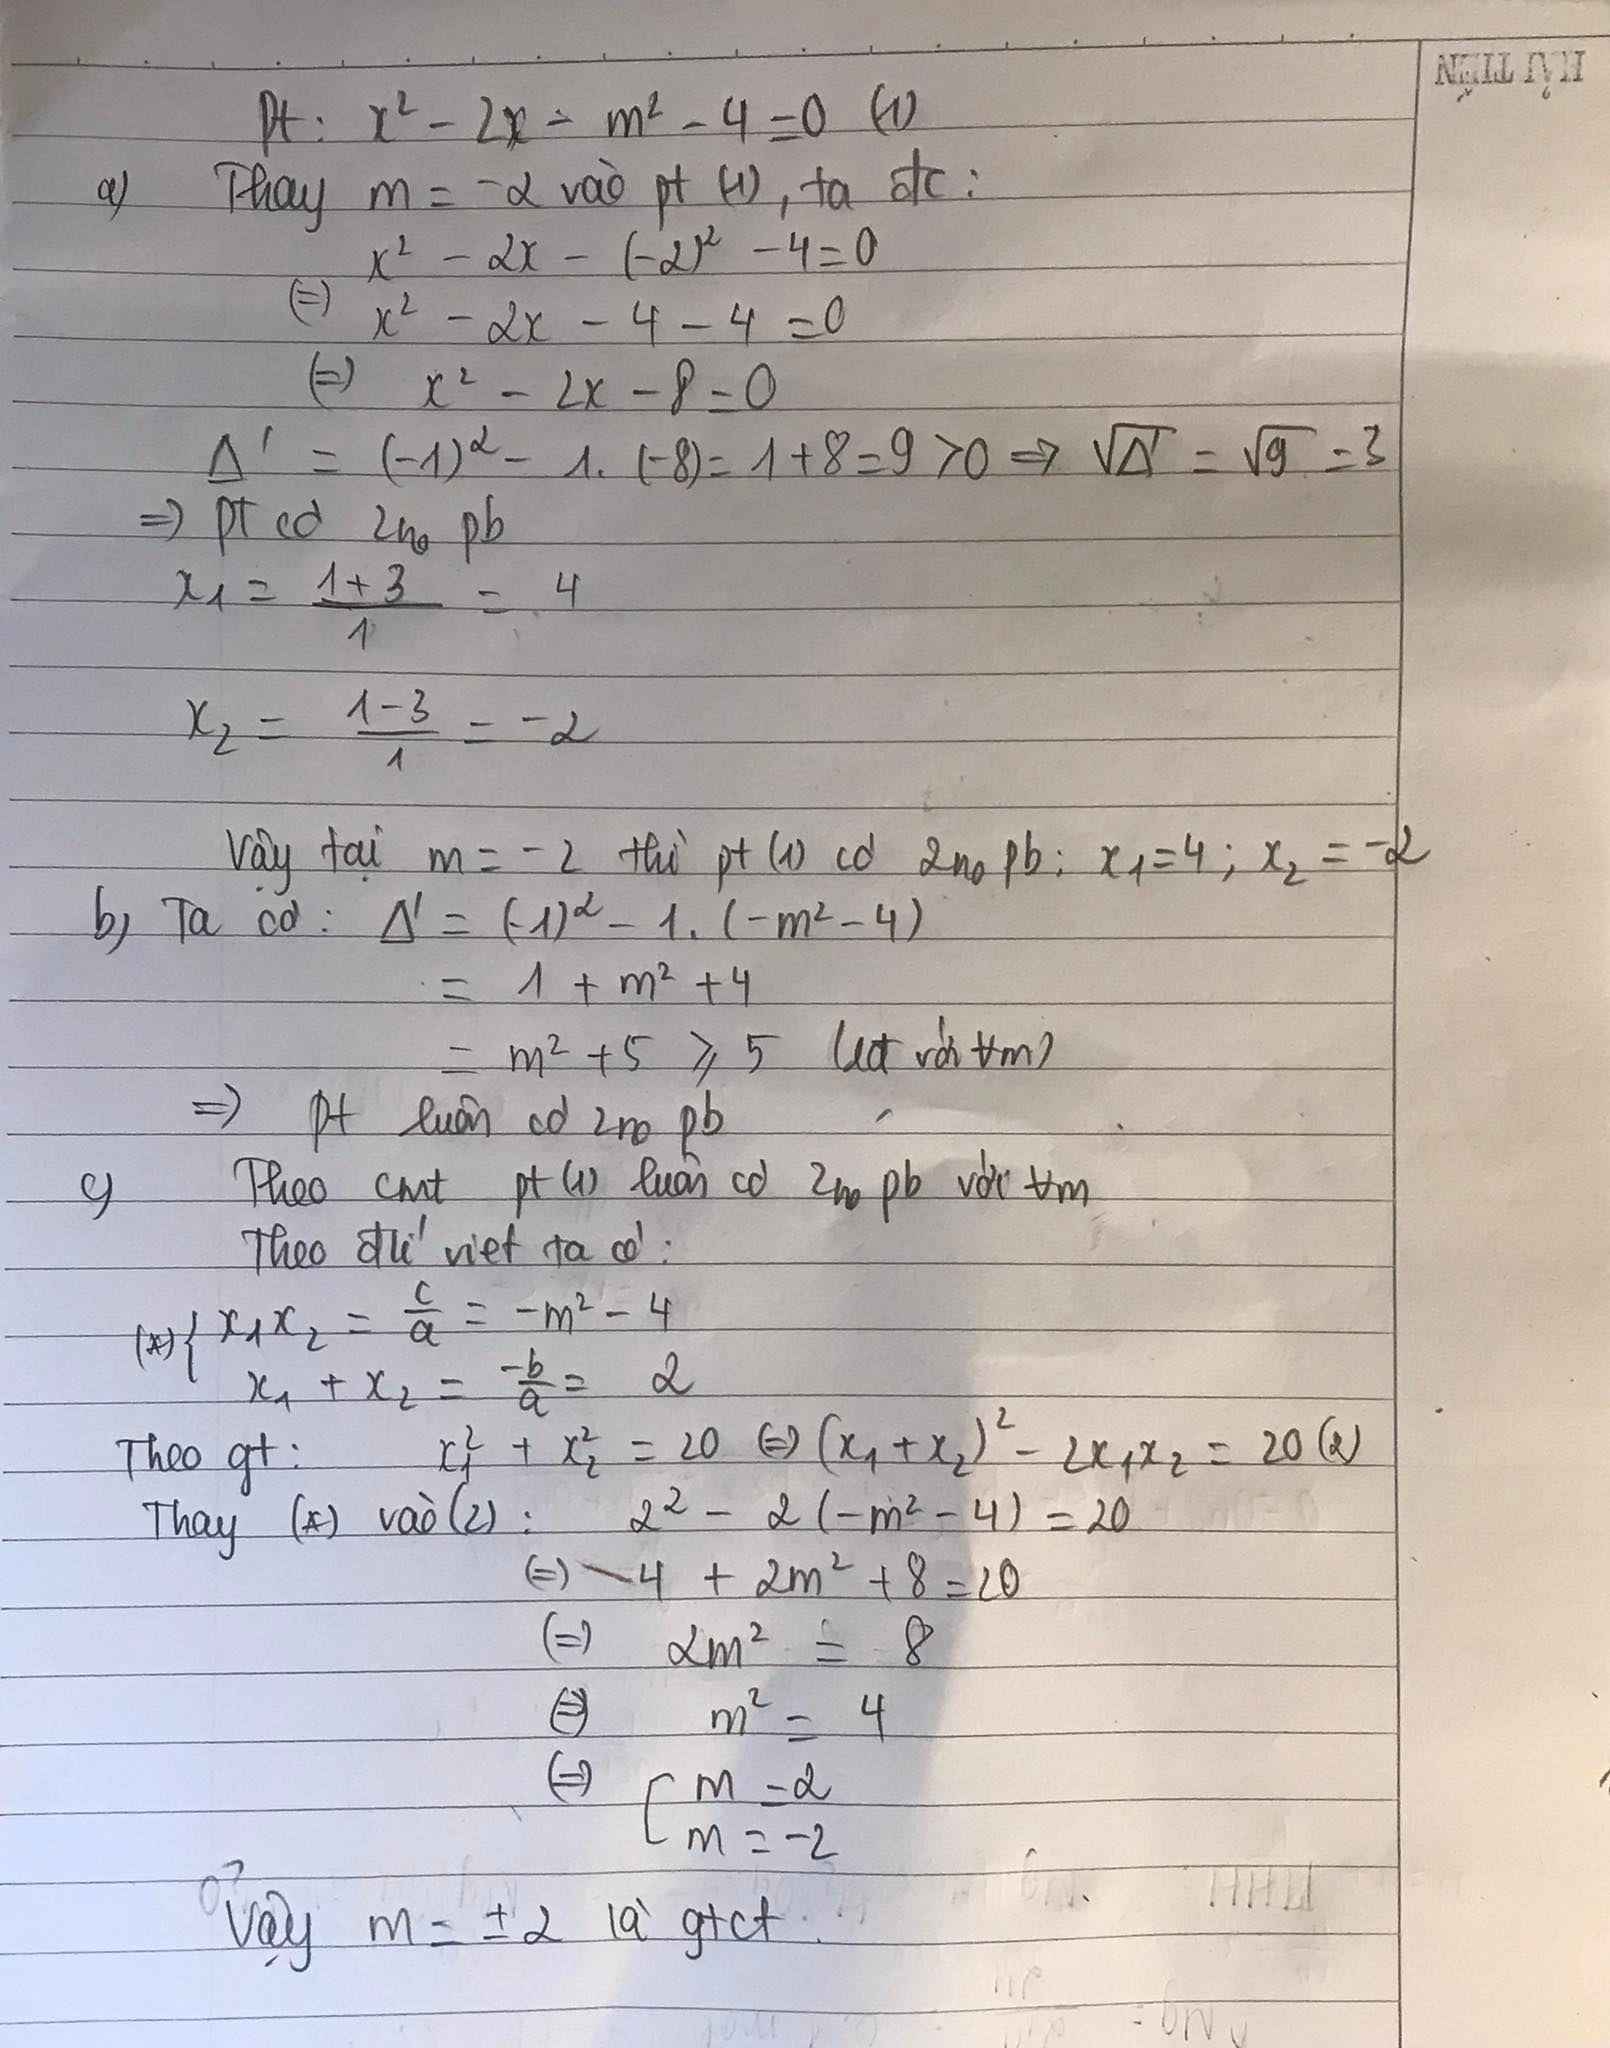 HẢI TIẾN
Pt: x² - 2x - m² - 4 = 0 (1)
a) Thay m = -2 vào pt (1), ta đc:
x² - 2x - (-2)² - 4 = 0
(=) x² - 2x - 4 - 4 = 0
(=) x² - 2x - 8 = 0
Δ' = (-1)² - 1. (-8) = 1 + 8 = 9 > 0 => √Δ' = √9 = 3
=> pt có 2no pb
x₁ = (1+3)/1 = 4
x₂ = (1-3)/1 = -2
Vậy tại m = -2 thì pt (1) có 2no pb: x₁ = 4; x₂ = -2
b, Ta có: Δ' = (-1)² - 1. (-m² - 4)
= 1 + m² + 4
= m² + 5 ≥ 5 (lđ với ∀m)
=> pt luôn có 2no pb
c) Theo cmt pt (1) luôn có 2no pb với ∀m
Theo đlí viet ta có:
(*) { x₁x₂ = c/a = -m² - 4
x₁ + x₂ = -b/a = 2
Theo gt: x₁² + x₂² = 20 (=) (x₁ + x₂)² - 2x₁x₂ = 20 (2)
Thay (*) vào (2): 2² - 2(-m² - 4) = 20
(=) 4 + 2m² + 8 = 20
(=) 2m² = 8
(=) m² = 4
(=) [ m = 2
m = -2
Vậy m = ±2 là gtct.